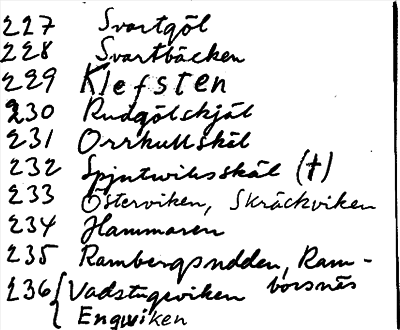 227 Svartgöl
228 Svartbäcken
229 Klefsten
230 Rudgölskjäl
231 Orrkullskäl
232 Spjutwiksskäl (†)
233 Österviken, Skräckviken
234 Hammaren
235 Rambergsudden, Ram-
borsnäs
236 { Vadstugviken
Engwiken